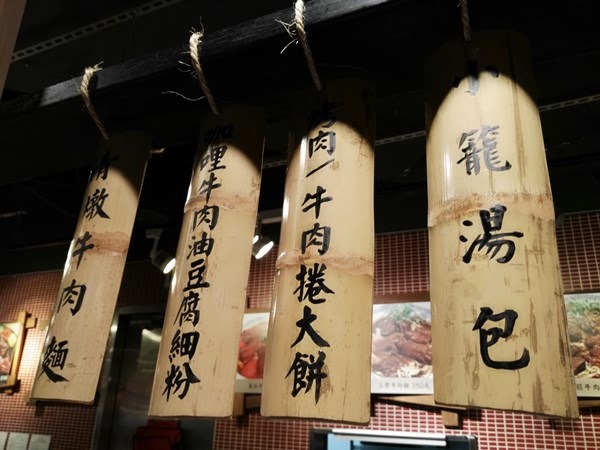 清燉牛肉麵
咖哩牛肉油豆腐細粉
烤肉一牛肉捲大餅
小籠湯包